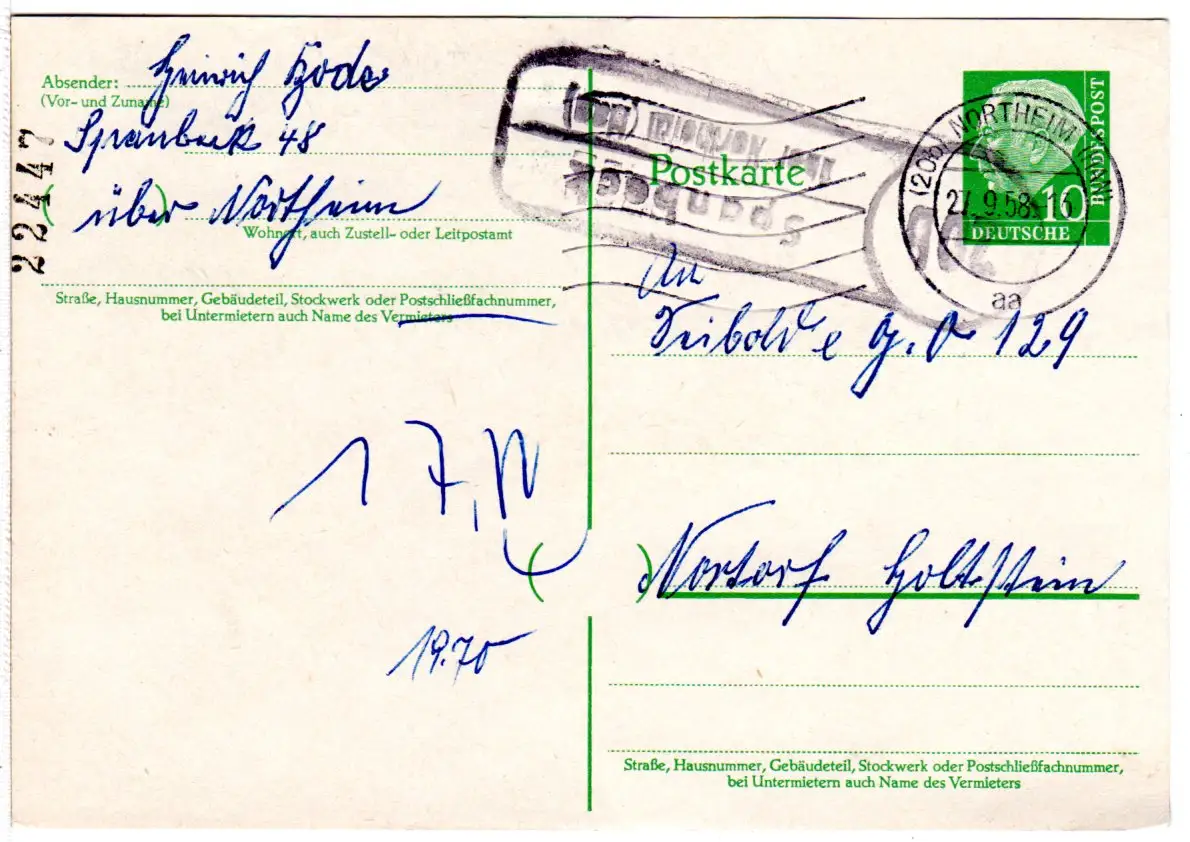 Absender: Heinrich Bode
(Vor- und Zuname)
Spanbeck 48
über Northeim
Wohnort, auch Zustell- oder Leitpostamt
Straße, Hausnummer, Gebäudeteil, Stockwerk oder Postschließfachnummer,
bei Untermietern auch Name des Vermieters
22447
17,
19.70
Spanbeck
über Northeim (Han)
20b
Postkarte
(20b) NORTHEIM
27.9.58-16
aa
10
DEUTSCHE
BUNDESPOST
An
129
Nortorf Holtstein
Straße, Hausnummer, Gebäudeteil, Stockwerk oder Postschließfachnummer,
bei Untermietern auch Name des Vermieters